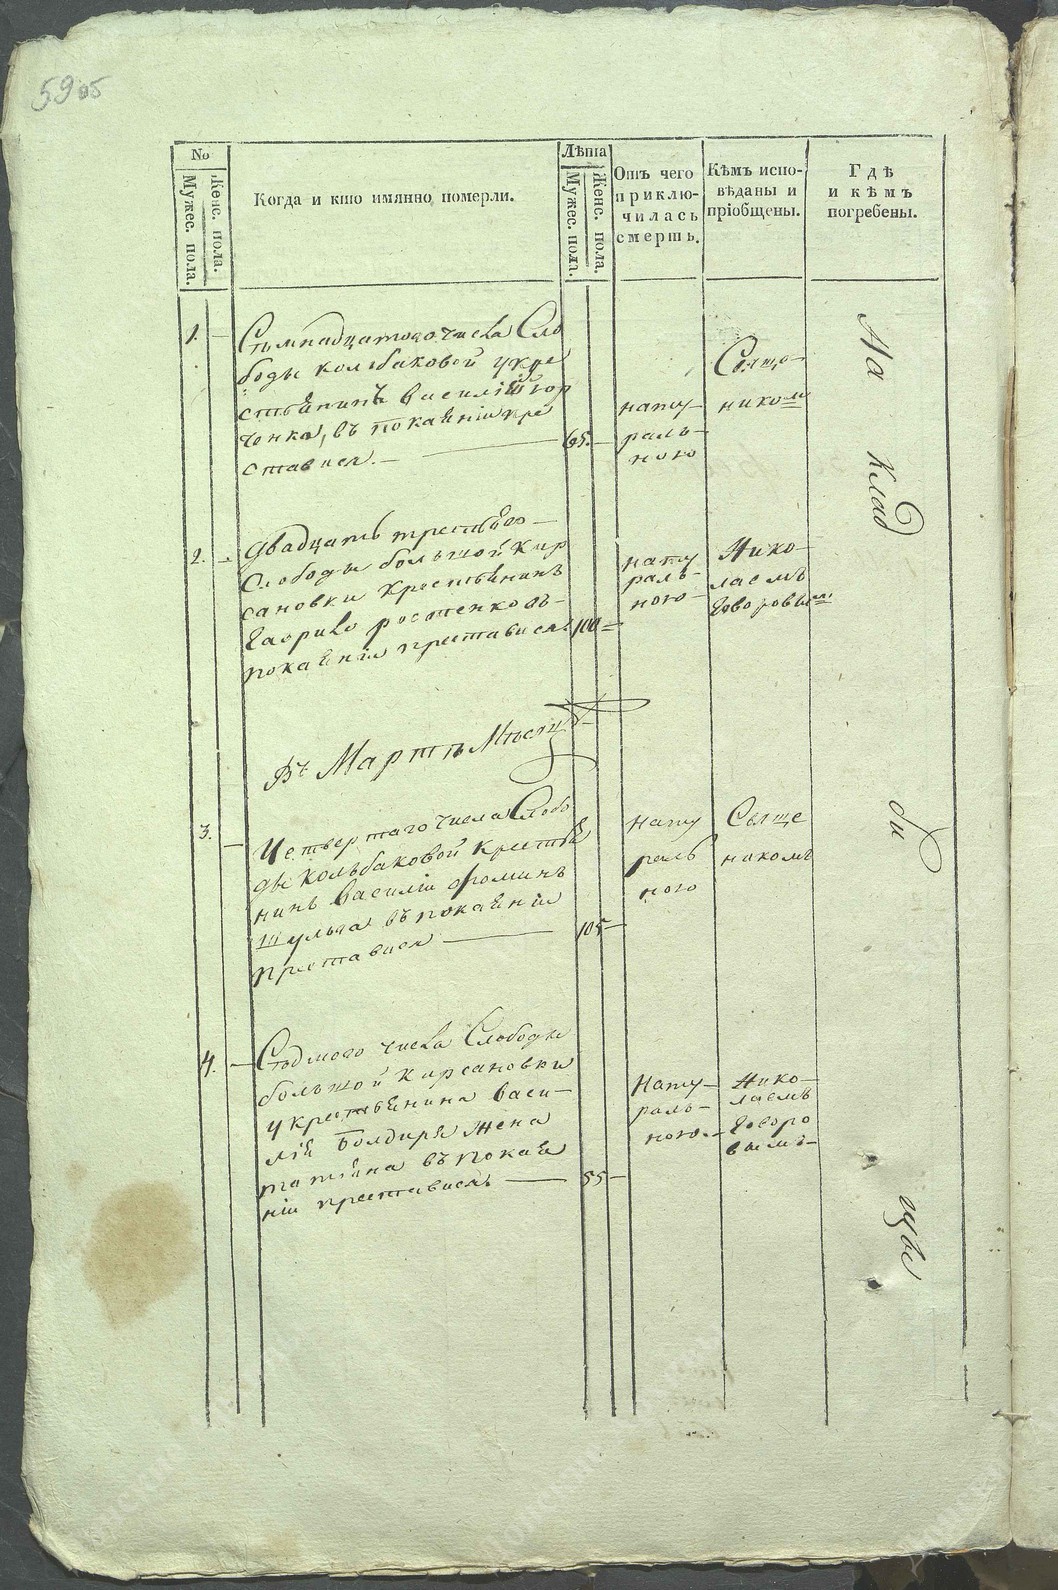 59 об
No
Мужес. пола.
Женс. пола.
Когда и кто имянно померли.
Лѣта
Мужес. пола.
Женс. пола.
Отъ чего
приклю-
чилась
смерть.
Кѣмъ испо-
вѣданы и
пріобщены.
Гдѣ
и кѣмъ
погребены.
1.
числа Сло
боды колбаковой укре
стьянинъ василій
ченко, въ покаяніи пре
ставися.
65.
нату-
раль-
ною
Свяще-
никомъ
На клад
2.
двадцать третьяго
Слободы большой кир
сановки крестьянинъ
Гаврило
покаяніи преставися.
100
нату
раль-
ною
Нико-
лаемъ
Говоровымъ
Въ Мартѣ Мѣсяцѣ
3.
Четвертаго числа Слобо
ды колбаковой крестья
нинъ василіи фоминъ
шульга въ покаяніи
преставися
105
нату
раль
ною
Свяще
никомъ
би
4.
Седмого числа Слободы
большой кирсановки
у крестьянина васи-
лія Болдиря жена
татияна въ покая
ніи преставися
55
Нату-
раль-
ною.
Нико-
лаемъ
Говоро
вымъ
щѣ